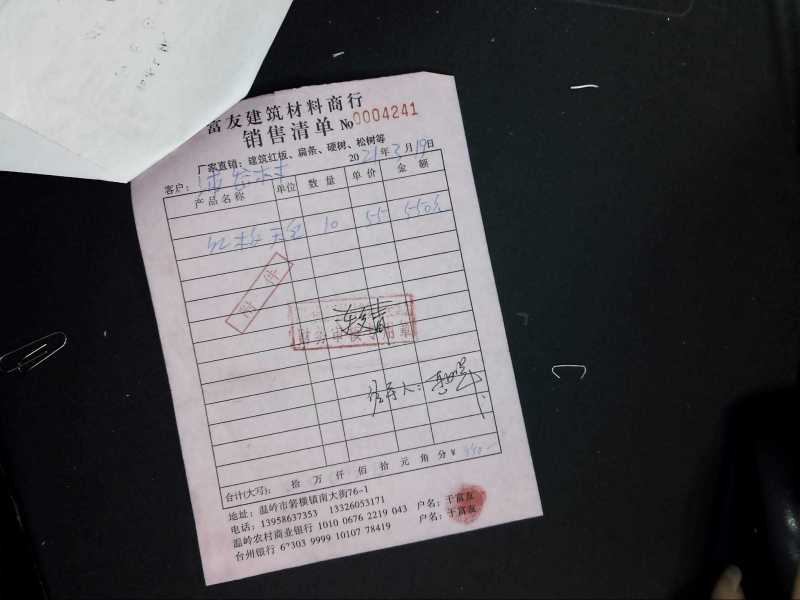 富友建筑材料商行
销售清单 No 0004241
厂家直销：建筑红板、扁条、硬树、松树等
客户： 2021年3月19日
产品名称 单位 数量 单价 金额
红板 10 55 550元
附件
财务审核专用章
经手人：
合计(大写)： 拾 万 仟 佰 拾 元 角 分 ¥ 550-
地址：温岭市箬横镇南大街76-1
电话：13958637353 13326053171
温岭农村商业银行 1010 0676 2219 043 户名：干富友
台州银行 67303 9999 10107 78419 户名：干富友